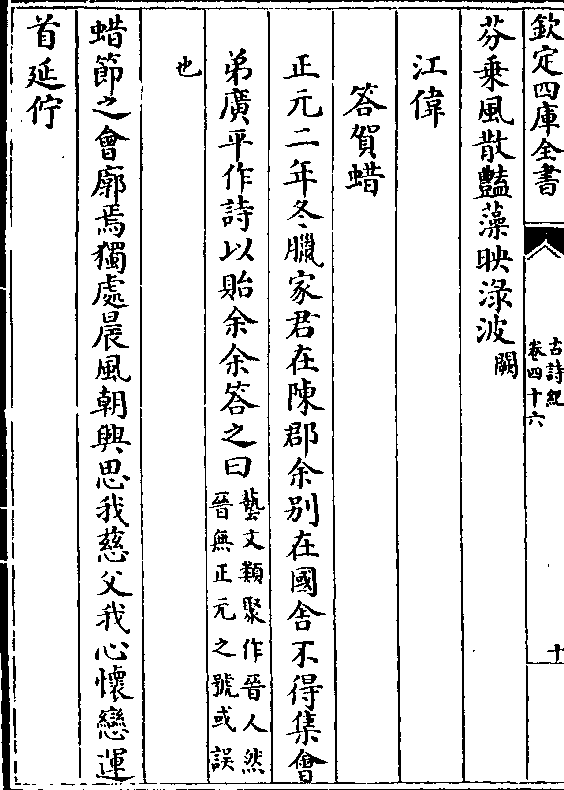 欽定四庫全書
古詩紀
卷四十六
十
芬乗風散豔藻映淥波闕
江偉
答賀蜡
正元二年冬臘家君在陳郡余别在國舎不得集會
弟廣平作詩以貽余余答之曰藝文類聚作晉人然
晉無正元之號或誤
也
蜡節之會廓焉獨處晨風朝興思我慈父我心懷戀運
首延佇